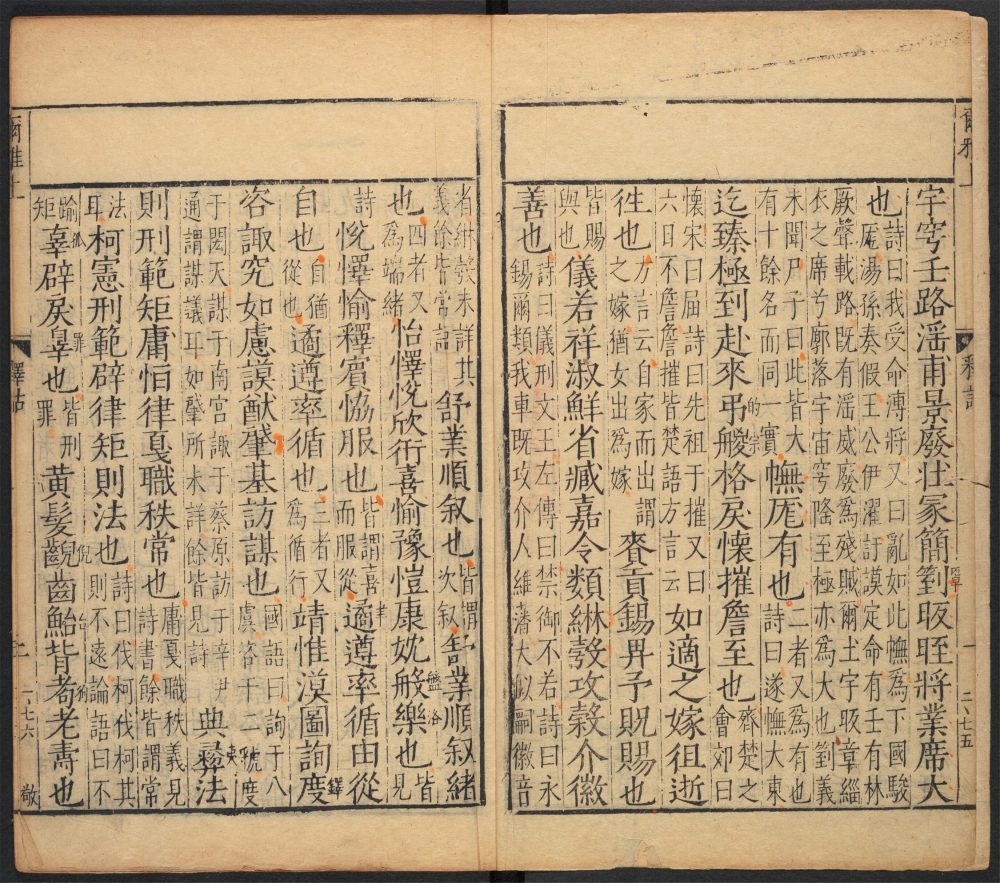 爾雅上
釋詁
一
二、七五
宇穹壬路淫甫景廢壯冢簡箌昄晊將業席大
也詩曰我受命溥將又曰亂如此幠爲下國駿
厖湯孫奏假王公伊濯訏謨定命有壬有林
厥聲載路既有淫威廢爲殘賊爾土宇昄章緇
衣之席兮廓落宇宙穹隆至極亦爲大也箌義
未聞尸子曰此皆大
有十餘名而同一實幠厖有也二者又爲有也
詩曰遂幠大東
迄臻極到赴來弔艐格戾懷摧詹至也齊楚之
會郊曰
懷宋曰屆詩曰先祖于摧又曰
六日不詹詹摧皆楚語方言云如適之嫁徂逝
徃也方言云自家而出謂
之嫁猶女出爲嫁賚貢錫畀予貺賜也
皆賜
與也儀若祥淑鮮省臧嘉令類綝彀攻穀介徽
善也詩曰儀刑文王左傳曰禁御不若詩曰永
錫爾類我車既攻介人維藩大姒嗣徽音
省綝彀未詳其
義餘皆常語舒業順叙也皆謂
次叙舒業順叙緒
也四者又
爲端緒怡懌悅欣衎喜愉豫愷康妉般樂也皆
見
詩悅懌愉釋賓協服也皆謂喜
而服從遹遵率循由從
自也自猶
從也遹遵率循也三者又
爲循行靖惟漠圖詢度
咨諏究如慮謨猷肇基訪謀也國語曰詢于八
虞咨于二虢度
于閎夭謀于南宮諏于蔡原訪于辛尹
通謂謀議耳如肇所未詳餘皆見詩典彝法
則刑範矩庸恒律戛職秩常也庸戛職秩義見
詩書餘皆謂常
法
耳柯憲刑範辟律矩則法也詩曰伐柯伐柯其
則不遠論語曰不
踰
矩辜辟戾辠也皆刑
罪黃髮齯齒鮐背耇老壽也
爾雅上
釋詁
一、七六
敬